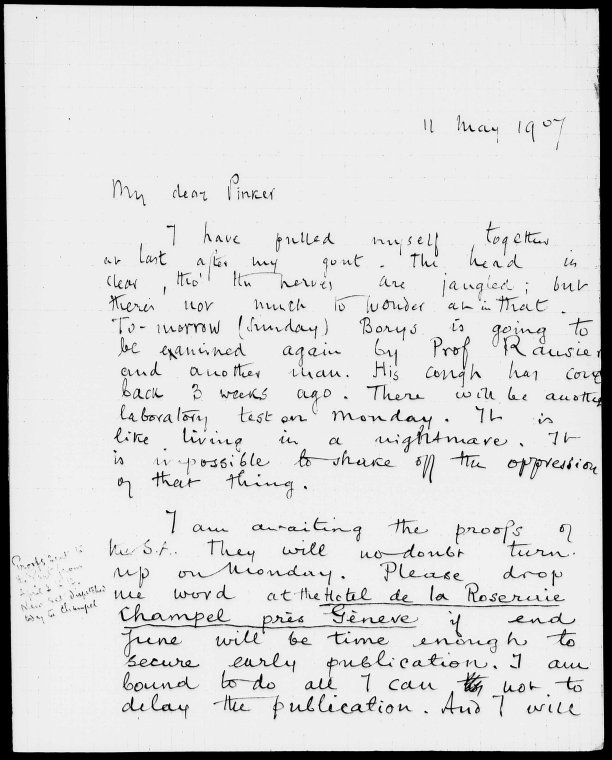 11 May 1907
My dear Pinker
I have pulled myself together
at last after my gout. The head is
clear, tho' the nerves are jangled; but
there's not much to wonder at in that.
To-morrow (Sunday) Borys is going to
be examined again by Prof Rausier
and another man. His cough has come
back 3 weeks ago. There will be another
laboratory test on Monday. It is
like living in a nightmare. It
is impossible to shake off the oppression
of that thing.
I am awaiting the proofs of
the S.A. They will no doubt turn
up on Monday. Please drop
me word at the Hotel de la Roseraie
Champel près Génève if end
June will be time enough to
secure early publication. I am
bound to do all I can not to
delay the publication. And I will
Proofs sent to
from
New set dispatched
to Champel